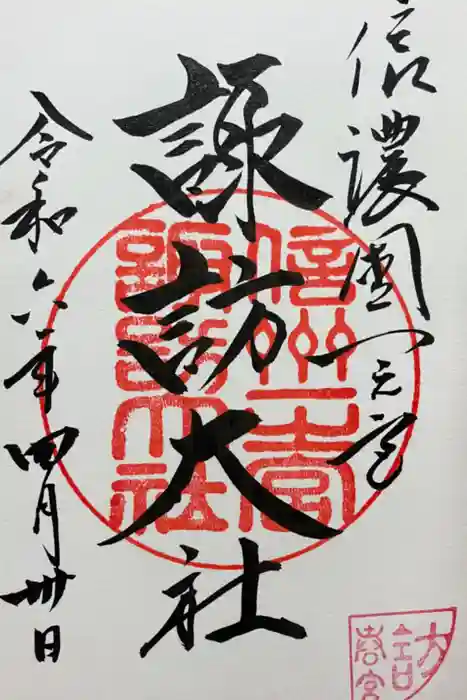 信濃國一之宮
諏訪大社
令和六年四月卅日
信州一宮
諏訪大社
春宮